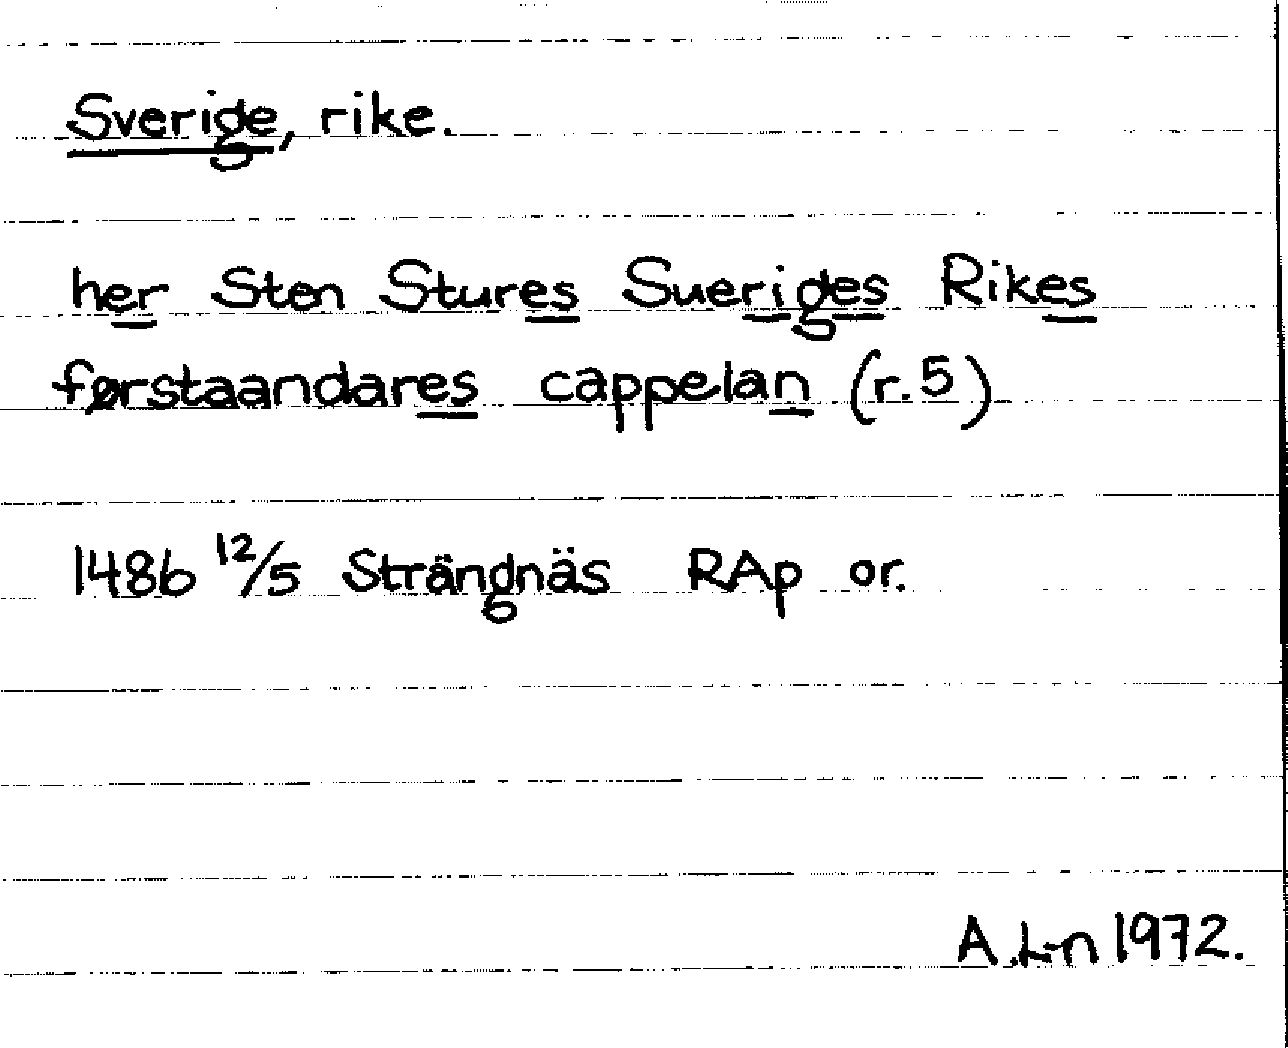 Sverige, rike.
her Sten Stures Sueriges Rikes
førstaandares cappelan (r. 5)
1486 12/5 Strängnäs RAp or.
A.L-n 1972.